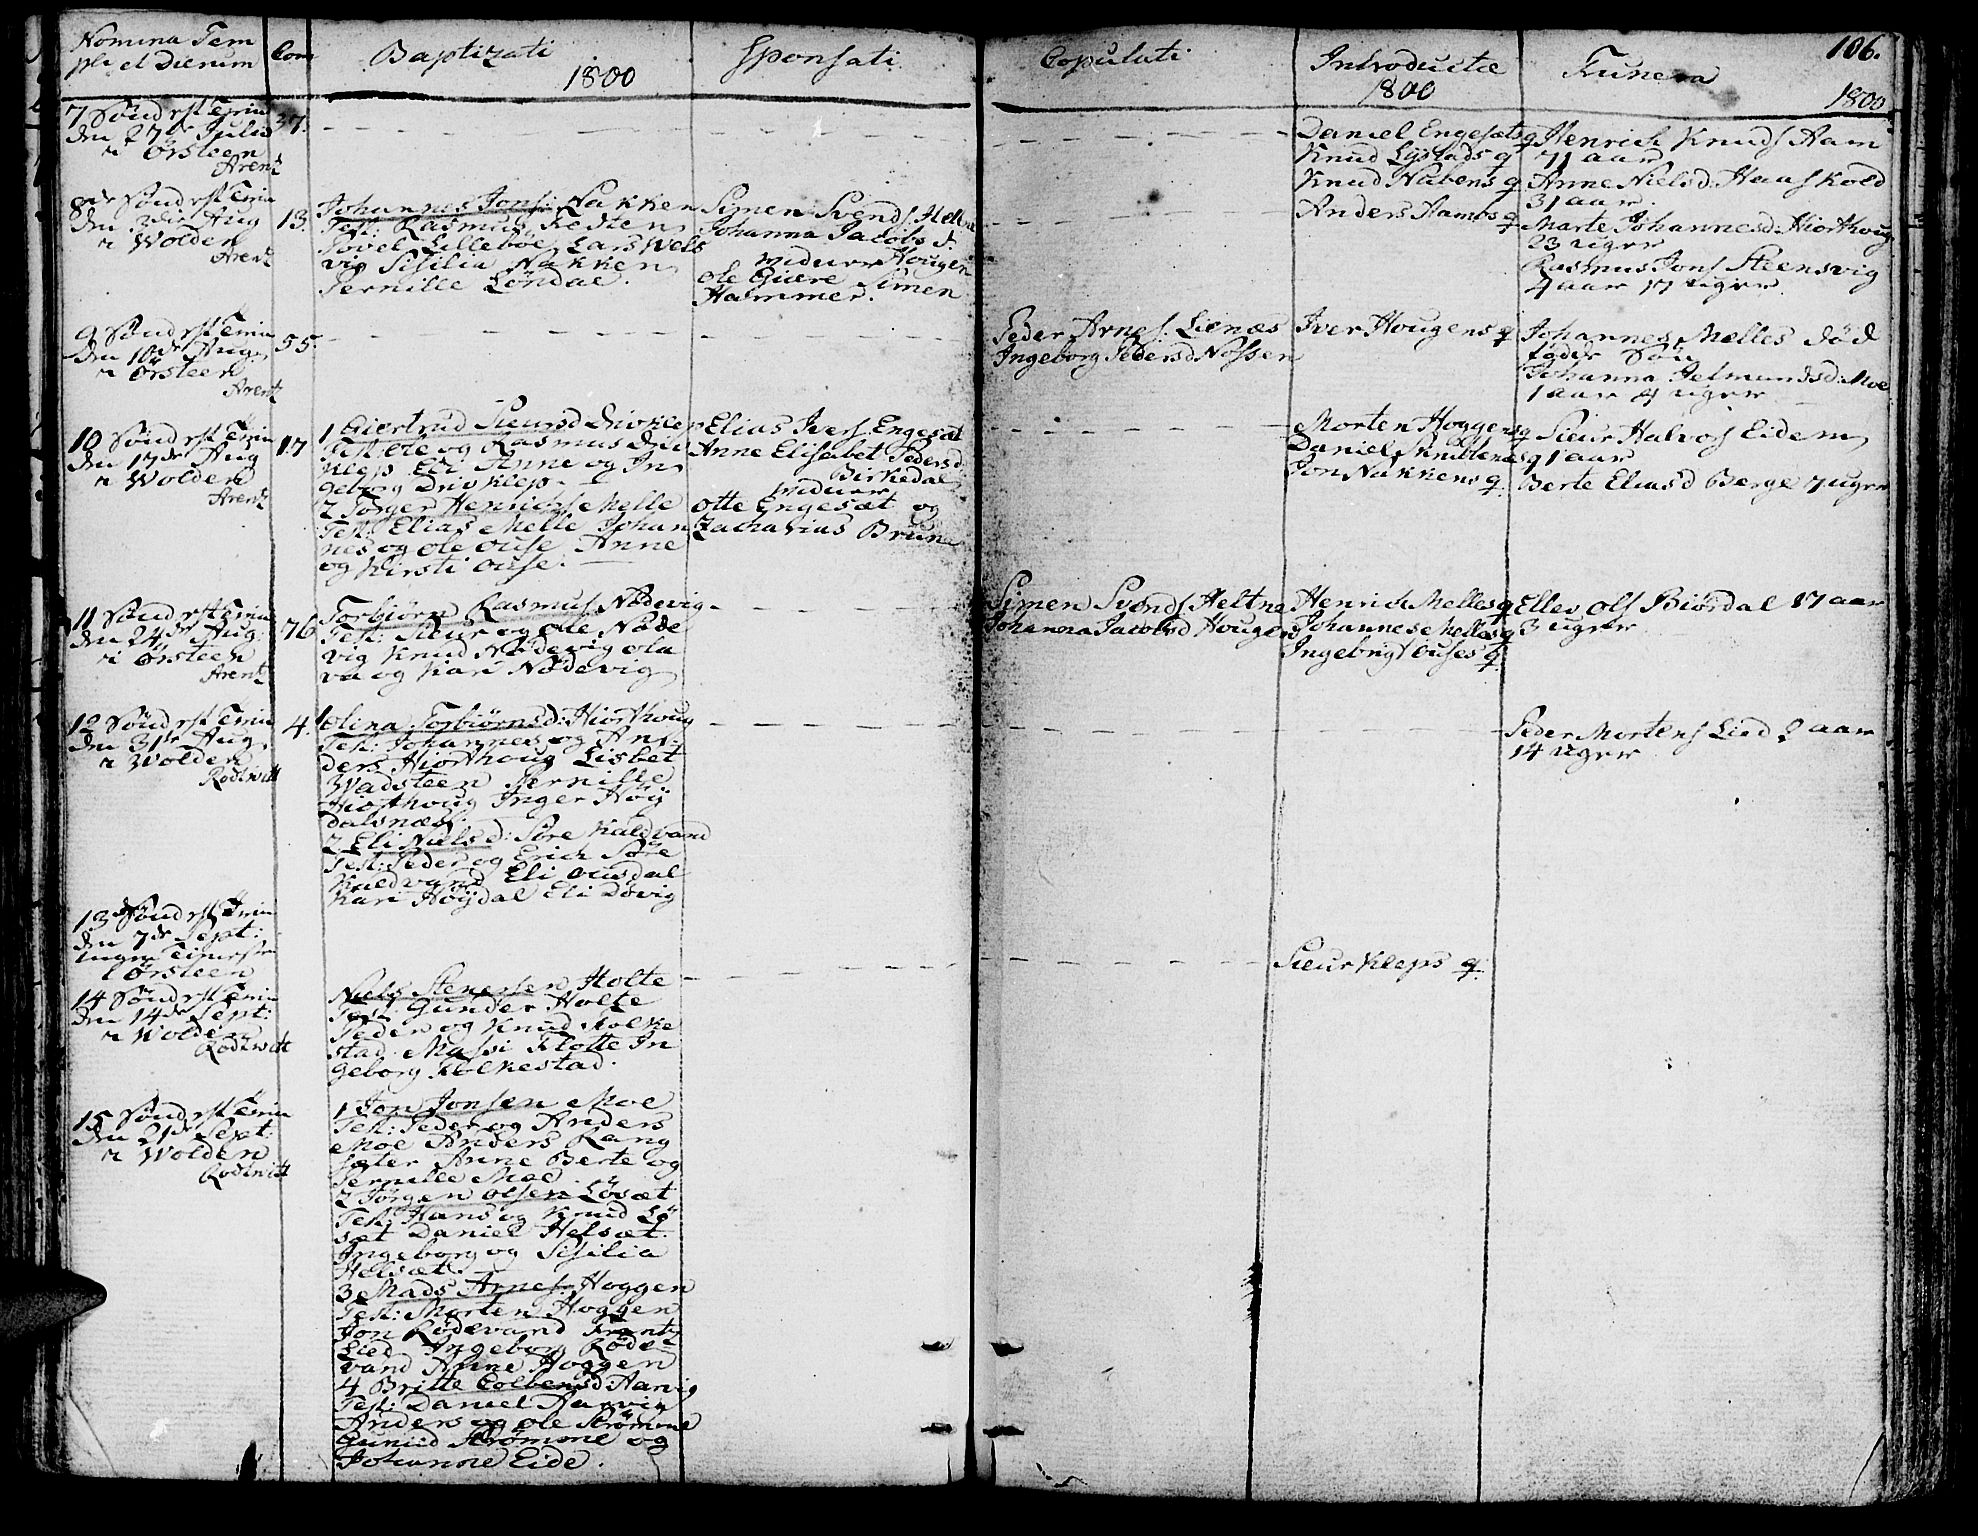 Nomina Tem
pli et Dierum
Com
Baptizati
1800
Sponsati
Copulati
Introductæ
1800
Funera
106.
1800
7 Sönd: post Trin
den 27de Julii
i Örsteen
Arentz
37.
Daniel Engesæts q
Knud Lystads q
Knud Nabens q
Anders Aamos q
Henrich Knuds Aam
71 aar
Anne Nielsd: Haaskold
31 aar.
Marte Johannesd: Hiorthoug
23 uger
Rasmus Jons Steensvig
4 aar 17 uger
8de Sönd: post Trin
den 3die Aug
i Wolden
Arentz
13.
Johannes Jons: Nakken
Test: Rasmus Kesten
Povel Lilleboe Lars Wels
vig Sisilia Nakken
Pernille Löndal.
Simen Svends Heltne
Johanna Jacobs d.
Hougen
Ole Giære Simen
Hammer.
9 Sönd: post Trin
den 10de Aug
i Örsteen
Arentz
55.
Peder Arnes. Lienæs
Ingeborg Pedersd Nossen
Iver Hougens q
Johannes Melles död
födde Sön
Johanna Jetmundsd: Moe
1 aar 4 uger
10 Sönd: post Trin
den 17de Aug
i Wolden
Arentz
17
1 Giertrud Sieursd Drivklep
Test: Ole og Rasmus Driv
klep Eli Anne og In
geborg Drivklep.
2 Törger Henrichs: Melle
Test: Elias Melle Johan
nes og Ole Ouse Anne
og Kirsti Ouse.
Elias Ivers. Engesæt
Anne Elisabet Pedersd
Birkedal
Otte Engesæt og
Zacharius Brune
Morten Hoggens q
Daniel q
Jon Nakkens q
Sieur Halvors Eidem
1 aar
Berte Eliasd Berge 7 uger
11 Sönd: post Trin
den 24de Aug:
i Örsteen
Arentz
76
Torbiörn Rasmus Nödevig
Test: Sieur og Ole Nöde
vig Knud Nödevig Ola
va og Kari Nödevig
Simen Svends Heltne
Johanna Jacobsd Hougen
Henrich Melles q
Johannes Melles q
Ingebrigt Ouses q
Ellev Ols Biördal 17 aar
3 uger
12 Sönd: post Trin
den 31te Aug
i Wolden
Rodtwitt
4.
1 Olina Torbiörnsd: Hiorthoug
Test: Johannes og An
ders Hiorthoug Lisbet
Wadsteen Pernille
Hiorthoug Inger Höy
dalsnæs.
2 Eli Nielsd: Söre Kaldvand
Test: Peder og Erich Söre
Kaldvand Eli Ousdal
Kari Höydal Eli Dövig
Peder Mortens Lied 2 aar
14 uger
13 Sönd post Trin
den 7de Sept:
ingen
i Örsteen
Sieur Kleps q.
14 Sönd post Trin
den 14de Sept:
i Wolden
Rodtwitt
Niels Stenersen Holte
Test: Gunder Holte
Peder og Knud Folke
stad Massi Flotte In
geborg Folkestad.
15 Sönd post Trin
den 21de Sept:
i Wolden
Rodtwitt
1 Jon Jonsen Moe
Test: Peder og Anders
Moe Anders Rang
sæter Anne Berte og
Pernille Moe
2 Jörgen Olsen Lösæt
Test: Hans og Knud Lö
sæt Daniel Helsæt
Ingeborg og Sisilia
Helsæt.
3 Mads Arnes. Hoggen
Test: Morten Hoggen
Jon Rödevand Frantz
Lied Ingeborg Röde
vand Anne Hoggen
4 Britte Colbensd: Aarvig
Test: Daniel Aarvig
Anders og Ole Strömme
Gunild Strömme og
Johanne Eide.